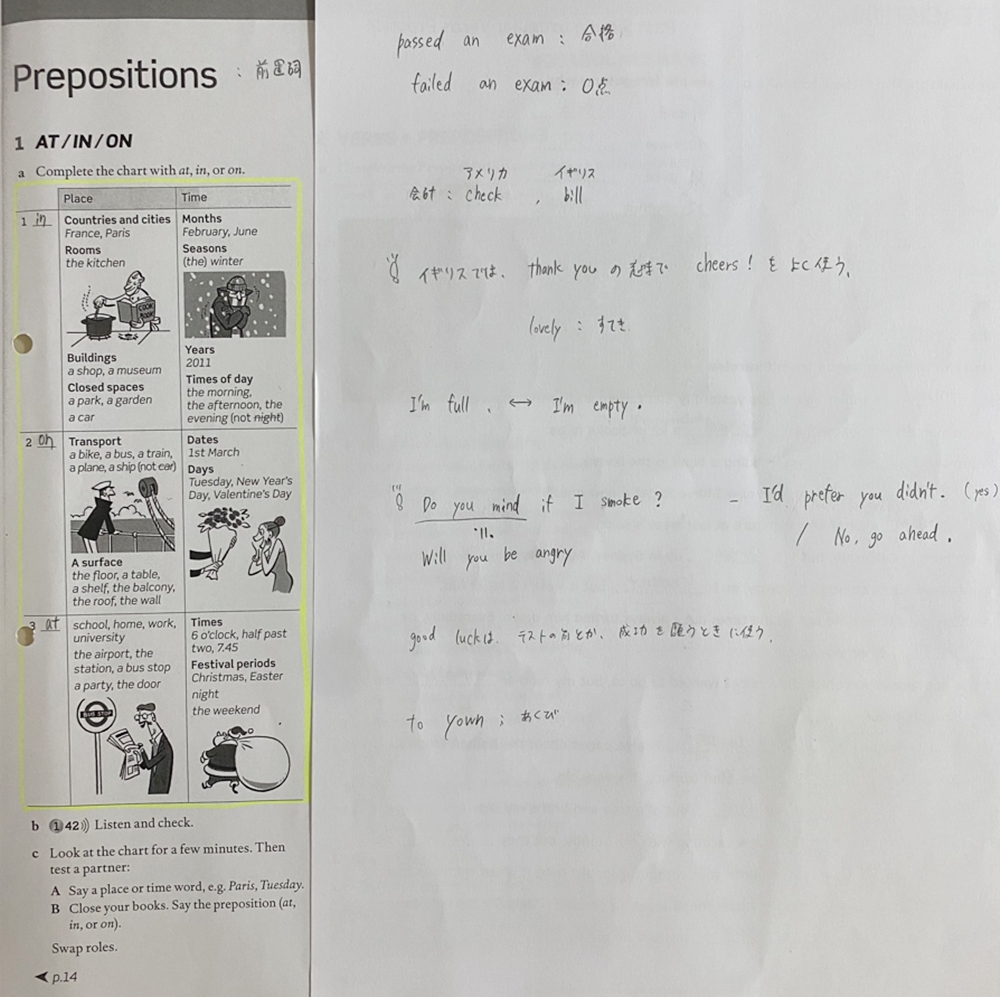 Prepositions : 前置詞
1 AT / IN / ON
a Complete the chart with at, in, or on.
Place
Time
1 in
Countries and cities
France, Paris
Rooms
the kitchen
COOK BOOK
Buildings
a shop, a museum
Closed spaces
a park, a garden
a car
Months
February, June
Seasons
(the) winter
Years
2011
Times of day
the morning,
the afternoon, the
evening (not night)
2 on
Transport
a bike, a bus, a train,
a plane, a ship (not car)
A surface
the floor, a table,
a shelf, the balcony,
the roof, the wall
Dates
1st March
Days
Tuesday, New Year's
Day, Valentine's Day
3 at
school, home, work,
university
the airport, the
station, a bus stop
a party, the door
BUS STOP
Times
6 o'clock, half past
two, 7.45
Festival periods
Christmas, Easter
night
the weekend
b 1 42 Listen and check.
c Look at the chart for a few minutes. Then
test a partner:
A Say a place or time word, e.g. Paris, Tuesday.
B Close your books. Say the preposition (at,
in, or on).
Swap roles.
p.14
passed an exam : 合格
failed an exam : 0点
アメリカ イギリス
会計 : check , bill
イギリスでは、 thank you の意味で cheers! をよく使う。
lovely : すてき
I'm full . ↔ I'm empty .
Do you mind if I smoke ? – I'd prefer you didn't. (yes)
/ No, go ahead .
Will you be angry
good luckは テストの前とか、成功を願うときに使う。
to yown ; あくび